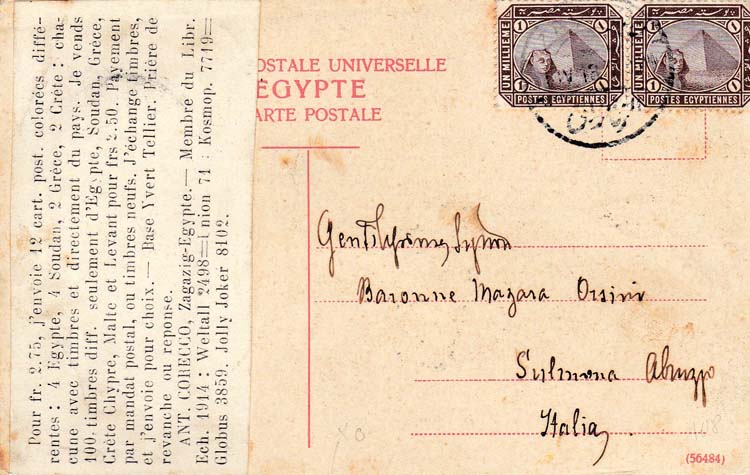 Pour fr. 2.75, j'envoie 12 cart. post. colorées diffé-
rentes : 4 Egypte, 4 Soudan, 2 Grèce, 2 Crète : cha-
cune avec timbres et directement du pays. Je vends
100 timbres diff. seulement d'Egypte, Soudan, Grèce,
Crète Chypre, Malte et Levant pour frs 2.50. Payement
par mandat postal, ou timbres neufs. J'échange timbres,
et j'envoie pour choix. — Base Yvert Tellier. Prière de
revanche ou reponse.
ANT. CORECCO, Zagazig-Egypte. — Membre du Libr.
Ech. 1914 : Weltall 2498 = Union 71 : Kosmop. 7719 =
Globus 3859. Jolly Joker 8102.
OSTALE UNIVERSELLE
ÉGYPTE
ARTE POSTALE
UN MILLIEME
1
1
POSTES EGYPTIENNES
UN MILLIEME
1
1
POSTES EGYPTIENNES
Baronne Mazara Orsini
Sulmona Abruzzo
Italia
(56484)